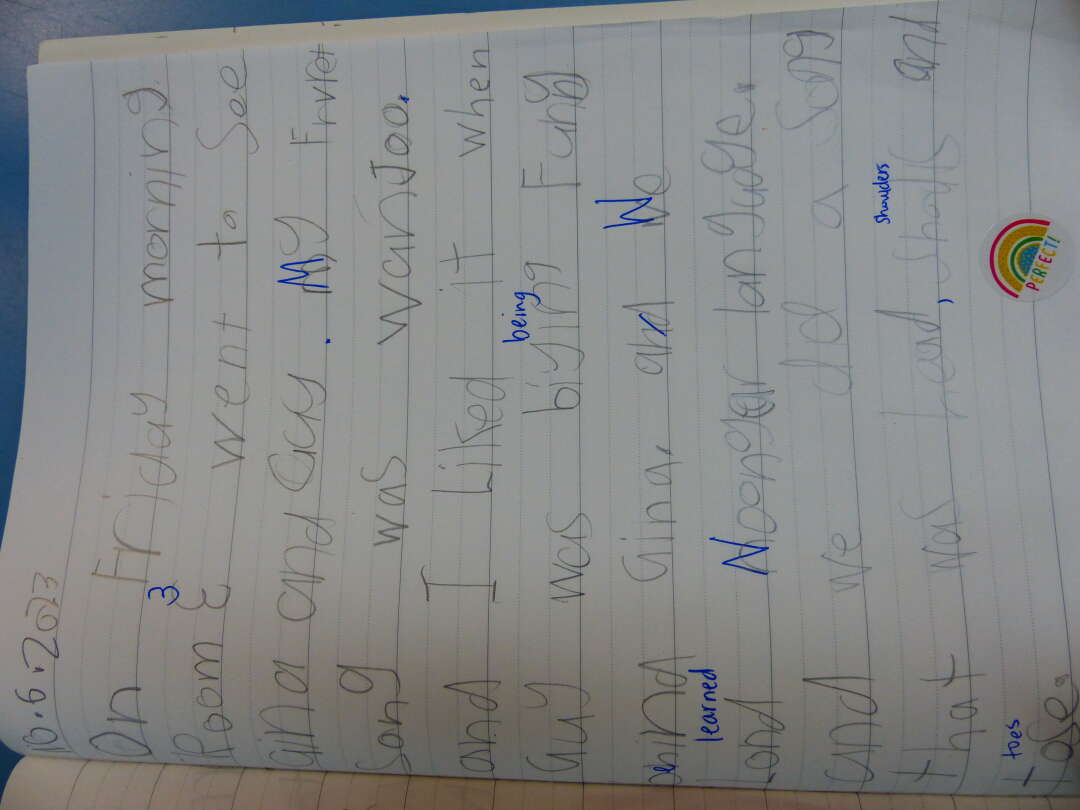 16.6.2023
On Friday morning.
3
Room 3 went to See
Gina and Guy. My Frvret
Song was wanJoo.
and I Liked it when
being
Guy was biying Funy
behind Gina. and We
learned
Land Noongar language.
and we did a song
shoulders
that was head, shoalls and
toes
tose.
PERFECT!